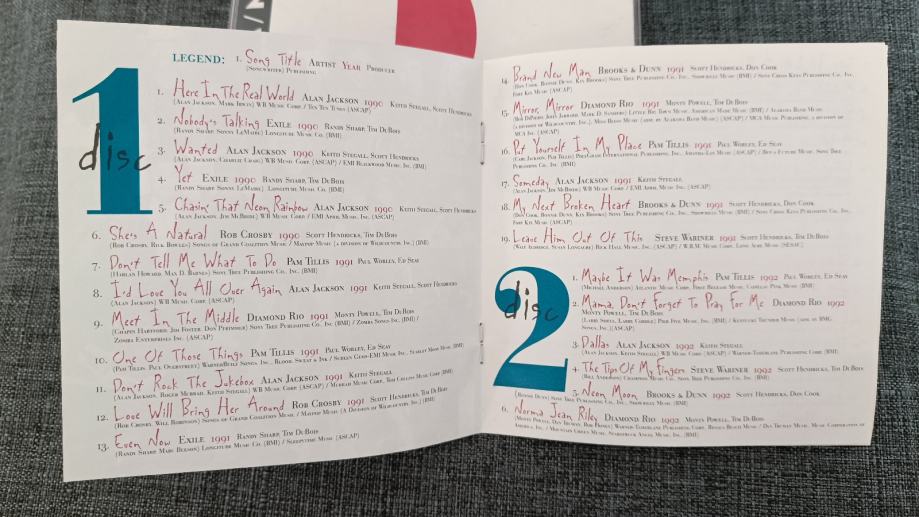 LEGEND: 1. Song Title ARTIST YEAR PRODUCER
(SONGWRITER) PUBLISHING
1 disc
1. Here In The Real World ALAN JACKSON 1990 KEITH STEGALL, SCOTT HENDRICKS
(ALAN JACKSON, MARK IRWIN) WB MUSIC CORP. / TEN TEN TUNES (ASCAP)
2. Nobody's Talking EXILE 1990 RANDY SHARP, TIM DUBOIS
(RANDY SHARP, SONNY LEMAIRE) LONGITUDE MUSIC CO. (BMI)
3. Wanted ALAN JACKSON 1990 KEITH STEGALL, SCOTT HENDRICKS
(ALAN JACKSON, CHARLIE CRAIG) WB MUSIC CORP. (ASCAP) / EMI BLACKWOOD MUSIC INC. (BMI)
4. Yet EXILE 1990 RANDY SHARP, TIM DUBOIS
(RANDY SHARP, SONNY LEMAIRE) LONGITUDE MUSIC CO. (BMI)
5. Chasin' That Neon Rainbow ALAN JACKSON 1990 KEITH STEGALL, SCOTT HENDRICKS
(ALAN JACKSON, JIM MCBRIDE) WB MUSIC CORP. / EMI APRIL MUSIC INC. (ASCAP)
6. She's A Natural ROB CROSBY 1990 SCOTT HENDRICKS, TIM DUBOIS
(ROB CROSBY, RICK BOWLES) SONGS OF GRAND COALITION MUSIC / MAYPOP MUSIC (A DIVISION OF WILDCOUNTRY, INC.) (BMI)
7. Don't Tell Me What To Do PAM TILLIS 1991 PAUL WORLEY, ED SEAY
(HARLAN HOWARD, MAX D. BARNES) SONY TREE PUBLISHING CO. INC. (BMI)
8. I'd Love You All Over Again ALAN JACKSON 1991 KEITH STEGALL, SCOTT HENDRICKS
(ALAN JACKSON) WB MUSIC CORP. (ASCAP)
9. Meet In The Middle DIAMOND RIO 1991 MONTY POWELL, TIM DUBOIS
(CHAPIN HARTFORD, JIM FOSTER, DON PFRIMMER) SONY TREE PUBLISHING CO. INC. (BMI) / ZOMBA SONGS INC. (BMI) /
ZOMBA ENTERPRISES INC. (ASCAP)
10. One Of Those Things PAM TILLIS 1991 PAUL WORLEY, ED SEAY
(PAM TILLIS, PAUL OVERSTREET) WARNERBUILT SONGS, INC., BLOOD, SWEAT & INK / SCREEN GEMS-EMI MUSIC INC., SCARLET MOON MUSIC (BMI)
11. Don't Rock The Jukebox ALAN JACKSON 1991 KEITH STEGALL
(ALAN JACKSON, ROGER MURRAH, KEITH STEGALL) WB MUSIC CORP. (ASCAP) / MURRAH MUSIC CORP., TOM COLLINS MUSIC CORP. (BMI)
12. Love Will Bring Her Around ROB CROSBY 1991 SCOTT HENDRICKS, TIM DUBOIS
(ROB CROSBY, WILL ROBINSON) SONGS OF GRAND COALITION MUSIC / MAYPOP MUSIC (A DIVISION OF WILDCOUNTRY, INC.) (BMI)
13. Even Now EXILE 1991 RANDY SHARP, TIM DUBOIS
(RANDY SHARP, MARC BEESON) LONGITUDE MUSIC CO. (BMI) / SLEEPYTIME MUSIC (ASCAP)
14. Brand New Man BROOKS & DUNN 1991 SCOTT HENDRICKS, DON COOK
(DON COOK, RONNIE DUNN, KIX BROOKS) SONY TREE PUBLISHING CO. INC., SHOWBILLY MUSIC (BMI) / SONY CROSS KEYS PUBLISHING CO. INC.,
FORT KIX MUSIC (ASCAP)
15. Mirror, Mirror DIAMOND RIO 1991 MONTY POWELL, TIM DUBOIS
(BOB DIPIERO, JOHN JARRARD, MARK D. SANDERS) LITTLE BIG TOWN MUSIC, AMERICAN MADE MUSIC (BMI) / ALABAMA BAND MUSIC
(A DIVISION OF WILDCOUNTRY, INC.), MISS BETSY MUSIC (ADM. BY ALABAMA BAND MUSIC) (ASCAP) / MCA MUSIC PUBLISHING, A DIVISION OF
MCA INC. (ASCAP)
16. Put Yourself In My Place PAM TILLIS 1991 PAUL WORLEY, ED SEAY
(CARL JACKSON, PAM TILLIS) POLYGRAM INTERNATIONAL PUBLISHING, INC., AMANDA-LIN MUSIC (ASCAP) / BUY A FUTURE MUSIC, SONY TREE
PUBLISHING CO. INC. (BMI)
17. Someday ALAN JACKSON 1991 KEITH STEGALL
(ALAN JACKSON, JIM MCBRIDE) WB MUSIC CORP. / EMI APRIL MUSIC INC. (ASCAP)
18. My Next Broken Heart BROOKS & DUNN 1991 SCOTT HENDRICKS, DON COOK
(DON COOK, RONNIE DUNN, KIX BROOKS) SONY TREE PUBLISHING CO. INC., SHOWBILLY MUSIC (BMI) / SONY CROSS KEYS PUBLISHING CO. INC.,
FORT KIX MUSIC (ASCAP)
19. Leave Him Out Of This STEVE WARINER 1991 SCOTT HENDRICKS, TIM DUBOIS
(WALT ALDRIDGE, SUSAN LONGACRE) RICK HALL MUSIC, INC. (ASCAP) / W.B.M. MUSIC CORP., LONG ACRE MUSIC (SESAC)
2 disc
1. Maybe It Was Memphis PAM TILLIS 1992 PAUL WORLEY, ED SEAY
(MICHAEL ANDERSON) ATLANTIC MUSIC CORP., FIRST RELEASE MUSIC, CADILLAC PINK MUSIC (BMI)
2. Mama, Don't Forget To Pray For Me DIAMOND RIO 1992
MONTY POWELL, TIM DUBOIS
(LARRY SHELL, LARRY CORDLE) PIER FIVE MUSIC, INC. (BMI) / KENTUCKY THUNDER MUSIC (ADM. BY BMG
SONGS, INC.) (ASCAP)
3. Dallas ALAN JACKSON 1992 KEITH STEGALL
(ALAN JACKSON, KEITH STEGALL) WB MUSIC CORP. (ASCAP) / WARNER-TAMERLANE PUBLISHING CORP. (BMI)
4. The Tips Of My Fingers STEVE WARINER 1992 SCOTT HENDRICKS, TIM DUBOIS
(BILL ANDERSON) CHAMPION MUSIC CO., SONY TREE PUBLISHING CO. INC. (BMI)
5. Neon Moon BROOKS & DUNN 1992 SCOTT HENDRICKS, DON COOK
(RONNIE DUNN) SONY TREE PUBLISHING CO. INC., SHOWBILLY MUSIC (BMI)
6. Norma Jean Riley DIAMOND RIO 1992 MONTY POWELL, TIM DUBOIS
(MONTY POWELL, DAN TRUMAN, ROB HONEY) WARNER-TAMERLANE PUBLISHING CORP., RESACA BEACH MUSIC / DAN TRUMAN MUSIC, MUSIC CORPORATION OF
AMERICA, INC. / MOUNTAIN GREEN MUSIC, STARSTRUCK ANGEL MUSIC, INC. (BMI)